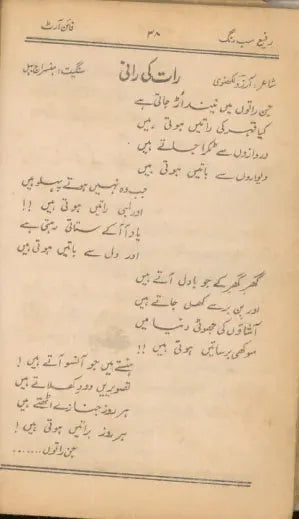 رفیع سب رنگ
۳۸
فائن آرٹ
رات کی رانی
شاعر: آرزو لکھنوی
سنگیت: ہنسراج بہل
جن راتوں میں نیند اڑ جاتی ہے
کیا قہر کی راتیں ہوتی ہیں
دروازوں سے ٹکرا جاتے ہیں
دیواروں سے باتیں ہوتی ہیں
جب وہ نہیں ہوتے پہلو میں
اور لمبی راتیں ہوتی ہیں !!
یاد آ آ کے ستاتی رہتی ہے
اور دل سے باتیں ہوتی ہیں
گھر گھر کے جو بادل آتے ہیں
اور بن برسے کھل جاتے ہیں
آشاؤں کی جھوٹی دنیا میں
سوکھی برساتیں ہوتی ہیں !!
ہنستے میں جو آنسو آتے ہیں !
تصویریں دو دکھلاتے ہیں
ہر روز جنازے اٹھتے ہیں
ہر روز براتیں ہوتی ہیں !
جن راتوں.......